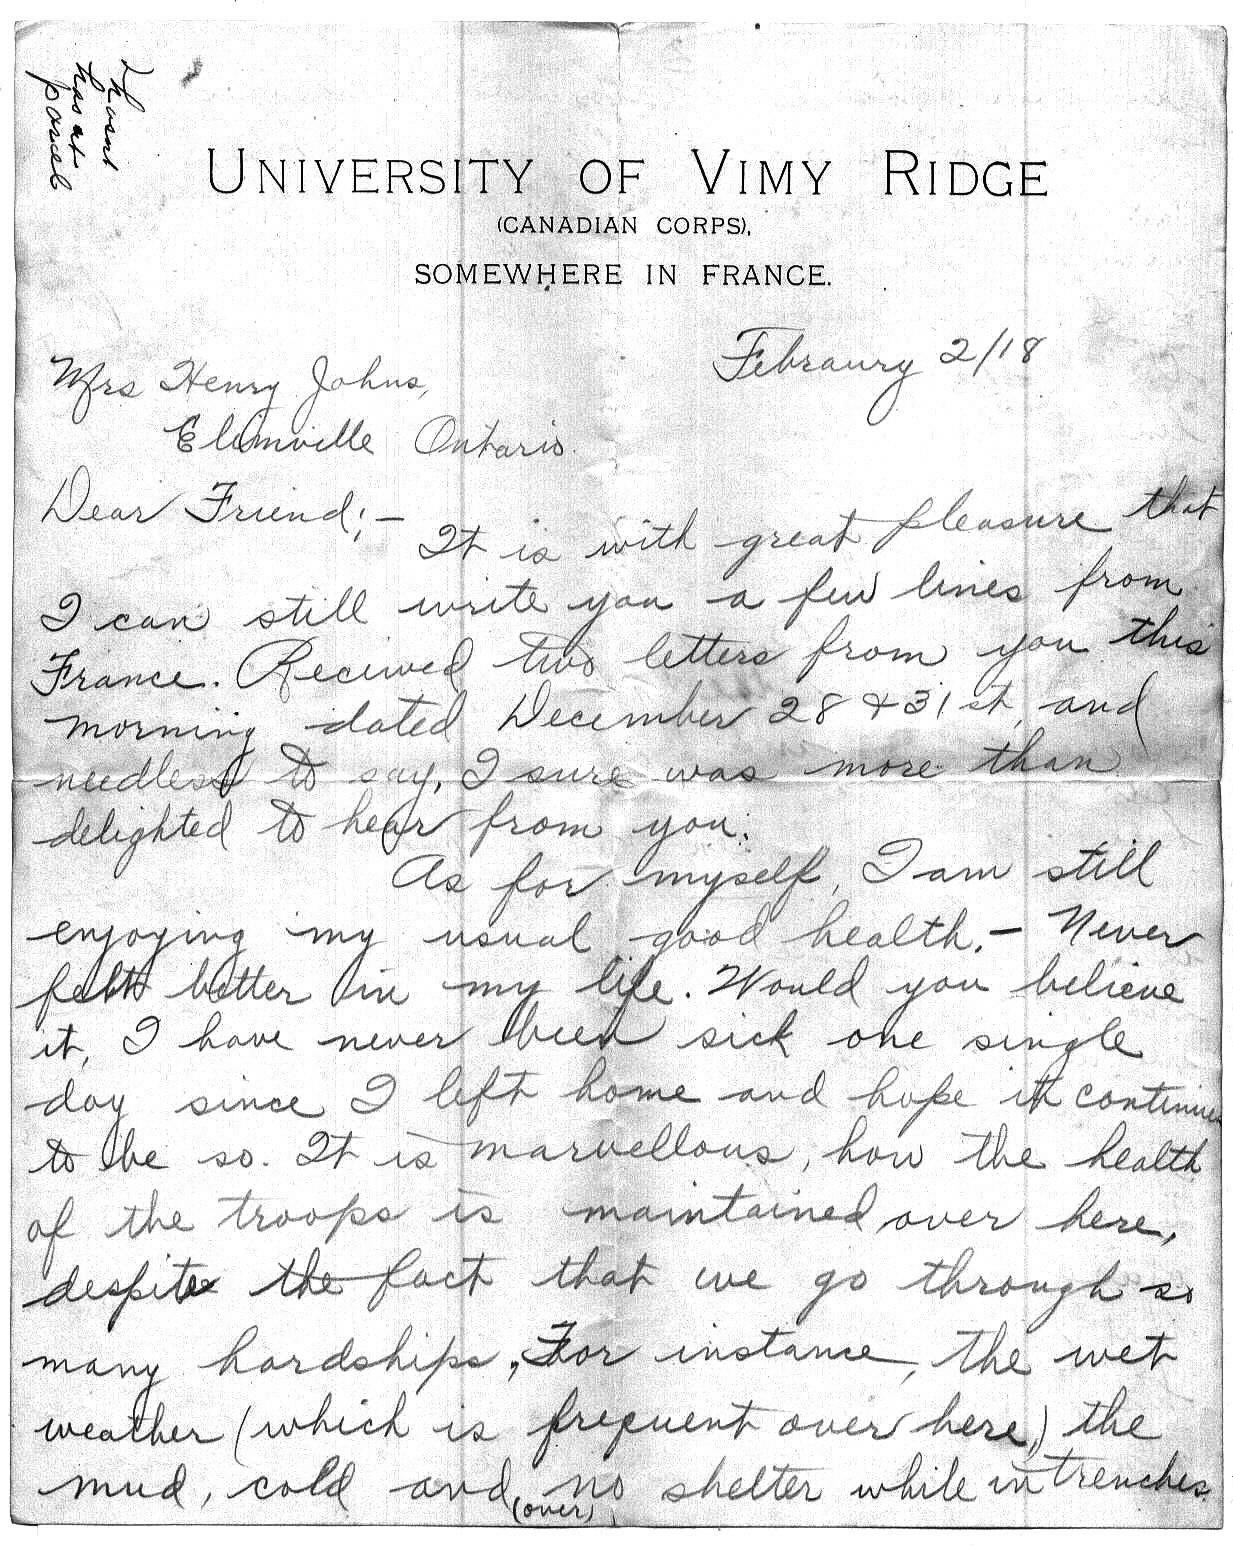 I hasnt
has at
parcel
UNIVERSITY OF VIMY RIDGE
(CANADIAN CORPS),
SOMEWHERE IN FRANCE.
Febraury 2/18
Mrs Henry Johns,
Elimville Ontario.
Dear Friend;-
It is with great pleasure that
I can still write you a few lines from
France. Recieved two letters from you this
morning dated December 28 & 31st, and
needless to say, I sure was more than
delighted to hear from you.
As for myself, I am still
enjoying my usual good health, - Never
felt better in my life. Would you believe
it, I have never been sick one single
day since I left home and hope it continues
to be so. It is marvellous, how the health
of the troops is maintained over here,
despite the fact that we go through so
many hardships, For instance, the wet
weather (which is frequent over here,) the
mud, cold and no shelter while in trenches.
(over)